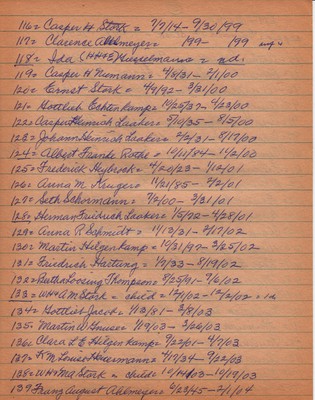 116= Casper H Stork = 7/7/14 - 9/30/99
117= Clarence Ahlmeyer = 199- 199
118= Ida (HHOE) Husselmann = n.d.
119= Casper H Niemann = 2/1/00
120= Ernst Stork = 4/9/92 - 3/21/00
121= Gottlieb Echtenkamp = 10/25/27 - 4/23/00
122= Casper Heinrich Laaker = 5/10/35 - 8/5/00
123= Johann Heinrich Laaker = 2/2/31 - 8/17/00
124= Albert Franke Rothe = 10/11/84 - 11/2/00
125= Frederick Heybrock = 4/20/23 - 1/12/01
126= Anna M. Kruger = 11/21/85 - 2/2/01
127= Seth Schormann = 7/2/00 - 3/31/01
128= Herman Fridrich Laaker = 1/5/72 - 4/28/01
129= Anna P. Schmidt = 2/17/02
130= Martin Hilgenkamp = 10/31/97 - 3/25/02
131= Friedrich Hartung = 1/7/33 - 8/19/02
132= Ruth Loosing Thompson = 9/25/91 - 7/6/02
133= WHAM Stork = child = 12/1/02 - 12/2/02 = 1d
134= Gottlieb Jacob = 1/13/81 - 3/8/03
135= Martin W Kruse = 1/19/03 - 3/26/03
136= Clara L E Hilgenkamp = 9/22/01 - 4/7/03
137= K M Louise Heuermann = 2/17/34 - 9/22/03
138= WHMA Stork = child = 10/14/03 - 10/19/03
139 Franz August Ahlmeyer = 2/23/45 - 2/1/04